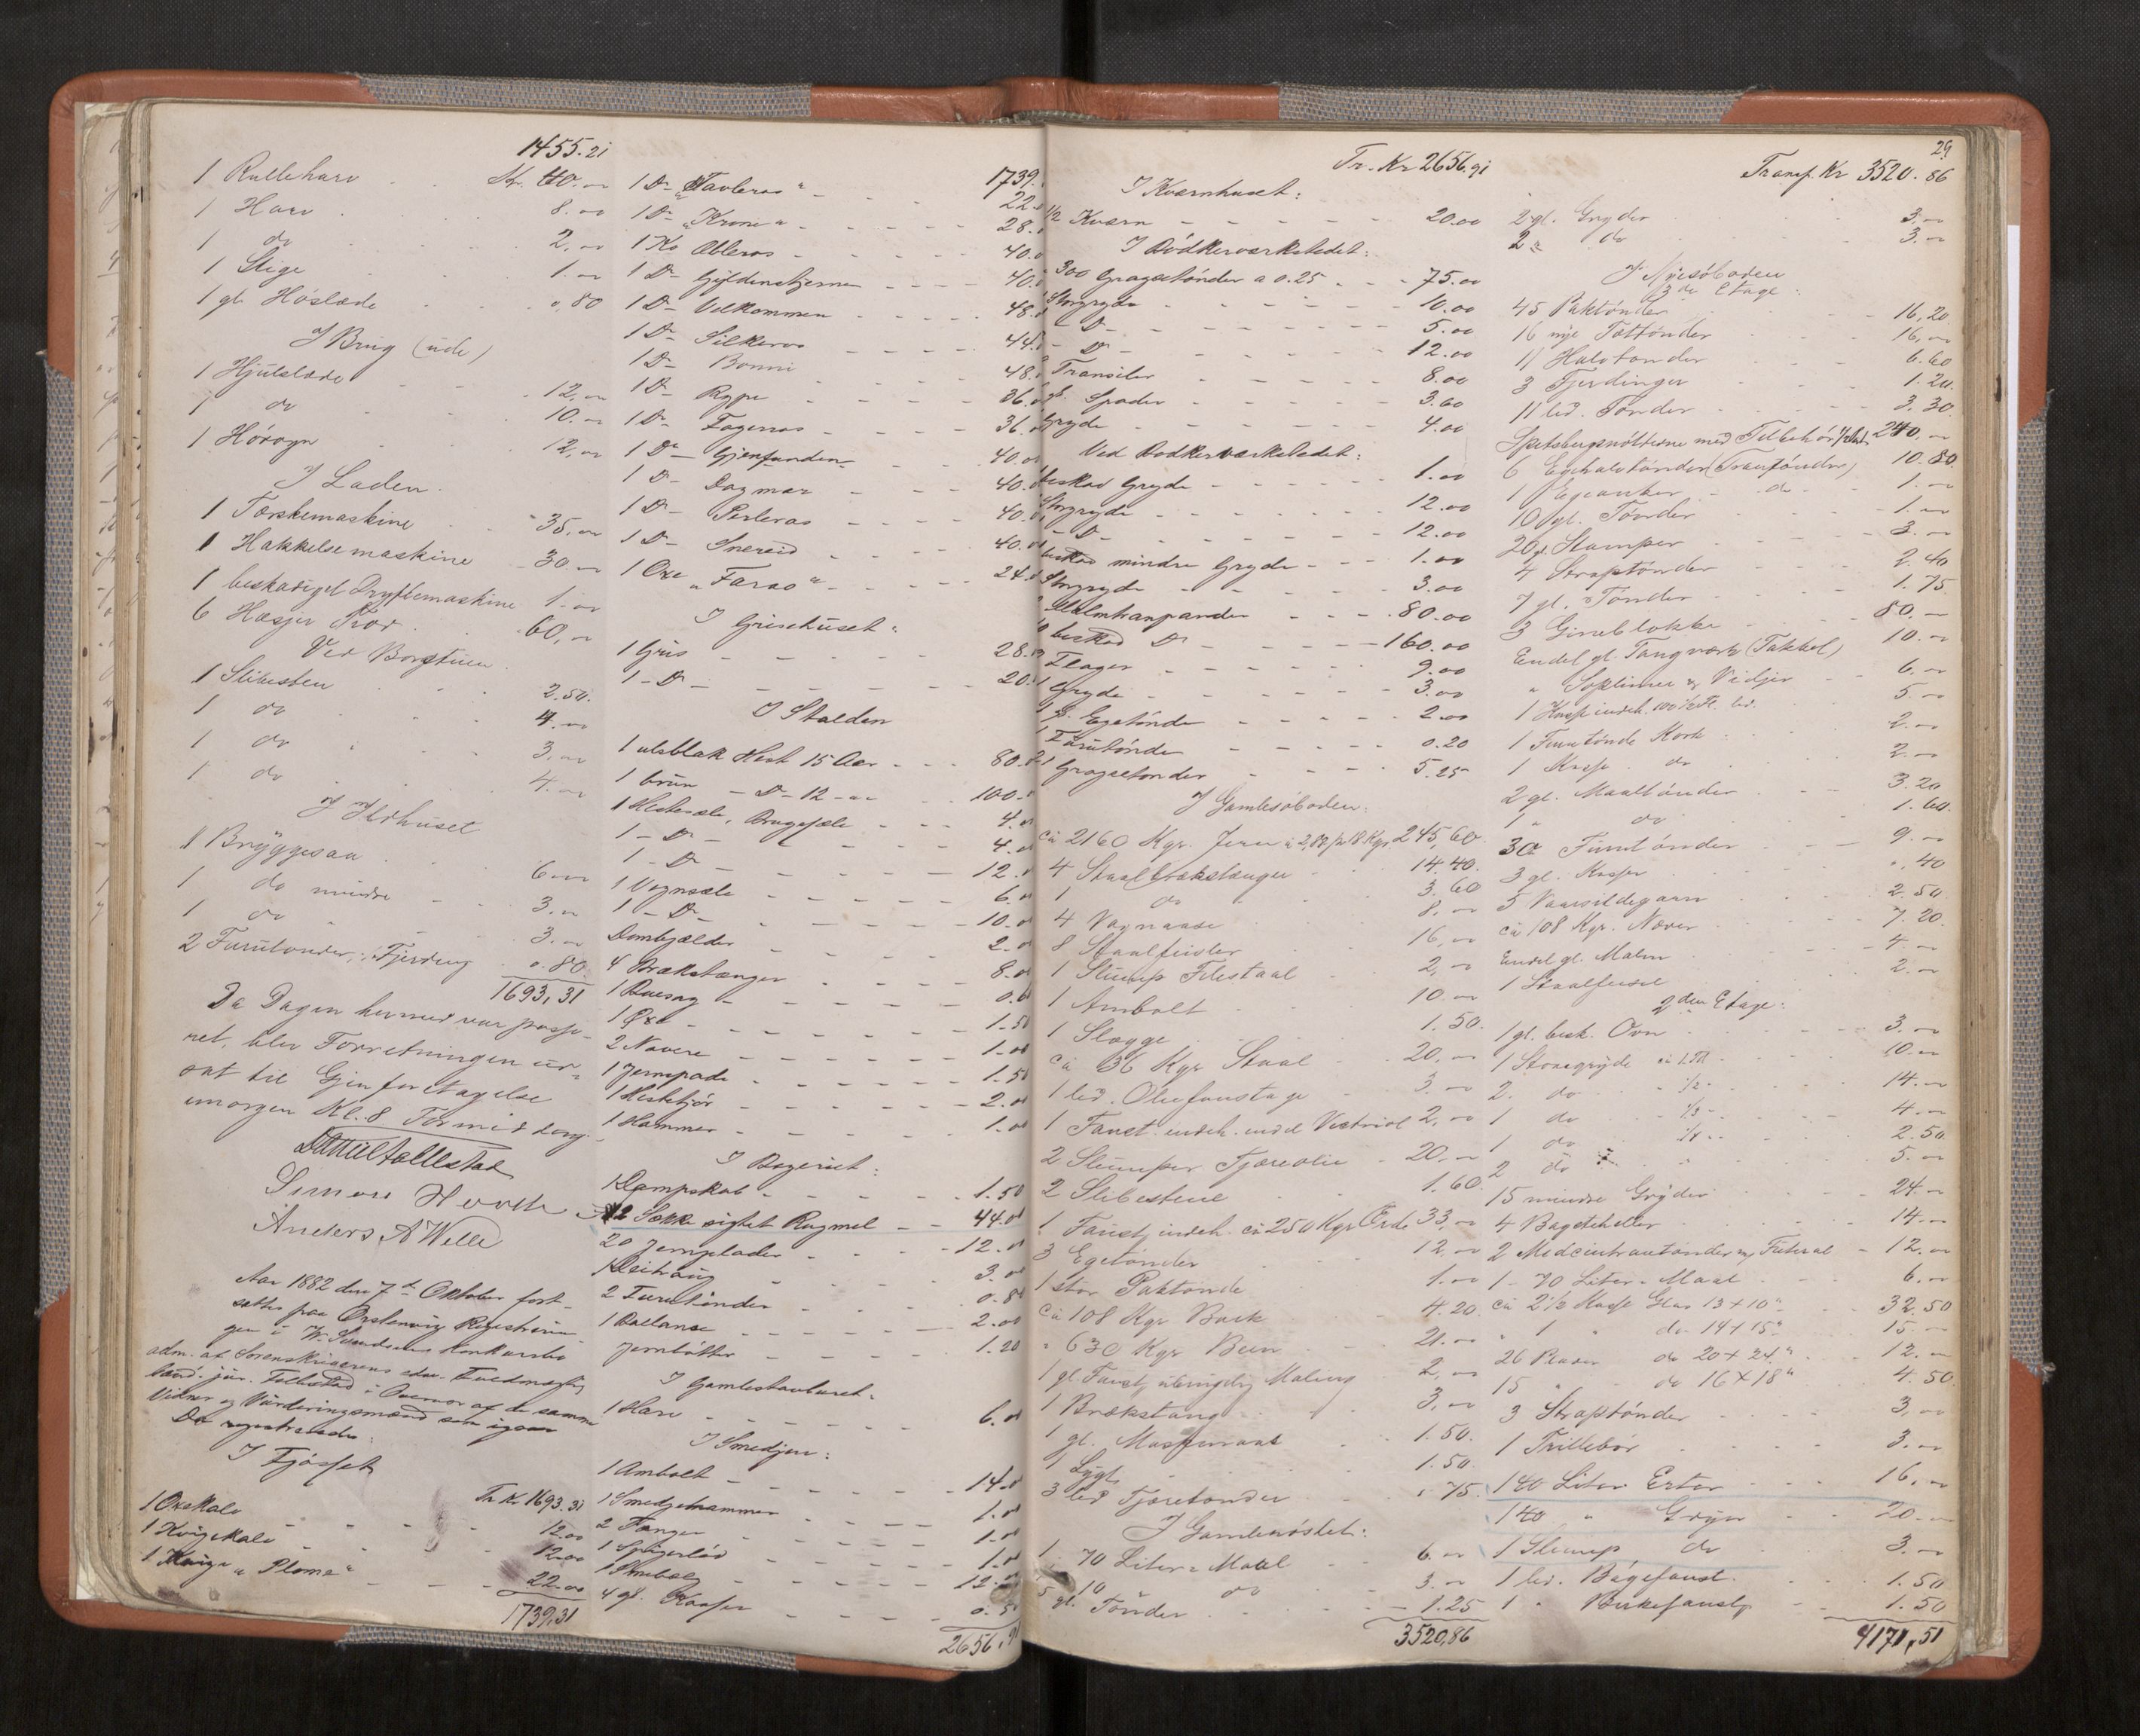 1455.21
1 Rulleharv Kr. 40.00
1 Harv 8.00
1 do 2,00
1 Stige 1.00
1 gl. Høslæde 0,80
I Brug (ude)
1 Hjulslæde 12,00
1 do 10.00
1 Høvogn 12,00
I Laden
1 Tærskemaskine 35,00
1 Hakkelsemaskine 30.00
1 beskadiget Dryftemaskine 1.00
6 Hæsjer 60,00
Ved Borgstuen
1 Slibesten 2.50.
1 do 4.00
1 do 3,00
1 do 4.00
I Ildhuset
1 Bryggesaa 6.00
1 do mindre 3.00
1 do 3.00
2 Furutønder, 1 Fjerding 0.80
1693,31
Da Dagen hermed var passe-
ret, blev Forretningen ud-
sat til Gjenforetagelse
imorgen Kl. 8 Formiddag.
Simon
Anders A Welle
Aar 1882 den 7de Oktober fort-
sattes paa Ørstenvig Registrerin-
gen i Konkursbo
adm. af Sorenskriverens edsv. Fuldmægtig
Cand. jur. Tollestad i Overvær af de samme
Vidner og Vurderingsmænd som igaar
Da registreredes:
I Fjøset
Tr Kr 1693.31
1 Oxekalv 12.00
1 Kvigekalv 12.00
1 Kvige "Ploma" 22.00
1739,31
1739.
1 Do "Tavleros" 22.
1 Do "Krone" 28.
1 Ko Ableros 40.
1 Do Gyldenstjerne 40.
1 Do Velkommen 48.
1 Do Silkeros 44.
1 Do Bonni 48.
1 Do Rype 36.
1 Do Fagerros 36.
1 Do Gjenfunden 40.
1 Do Dagmar 40.
1 Do Perleros 40.
1 Do Snereid 40.
1 Oxe "Farao" 24.
I Grisehuset:
1 Gris 28.
1 Do 20.
I Stalden
1 ulsblak Hest 15 Aar 80.
1 brun Do 12 100.
1 Hestesæle, Brugesæle 4.
1 Do 4.
1 Do 12.
1 Vognsæle 6.
1 Do 10.
Dombjælder 2.
4 Brækstænger 8.
1 Buesag 0.6
1 Øxe 1.50
2 Navere 1.00
1 Jernspade 1.50
1 Hestetjør 2.00
1 Hammer 1.00
I Bageriet:
1 Lampskab 1.50
2 Sække sigtet Rugmel 44.00
20 Jernplader 12.
1 Deitraug 3.
2 Furutønder 0.8
1 Ballanse 2.00
Jernbøtter 1.20
I Gamlestavburet:
1 Harv 6.
I Smedjen:
1 Ambolt 14.
1 Smedjehammer 1.
2 Tænger 1.
1 Spigerlod 1.
1 Smebælg 12.
4 gl. Kasser 0.50
2656.91
Tr. Kr 2656.91
I Kværnhuset:
1/2 Kværn 20.00
I Bødkerværkstedet:
300 Gragsetønder a 0.25 75.00
Storgryde 10.00
Do 5.00
Do 12.00
Transiler 8.00
gl. Spader 3.60
Gryde 4.00
Ved Bødkerværkstedet:
beskad Gryde 1.00
Storgryde 12.00
Do 12.00
beskad mindre Gryde 1.00
Storgryde 3.00
80.00
beskad Do 160.00
Flager 9.00
Gryde 3.00
gl. Egetønde 2.00
Furutønde 0.20
Gragsetønder 5.25
I Gamlesøboden:
ca 2160 Kgr. Jern 245,60
4 Staalbrækstænger 14.40.
1 do 3.60
4 Vognaase 8,00
8 Staalfeidler 16,00
1 Stump Filestaal 2,00
1 Ambolt 10.00
1 Slægge 1.50.
ca 36 Kgr Staal 20,00
1 led. Oliefoustage 3.00
1 Foust. indeh. endel Victriol 2,00
2 Stumper Tjæreolie 20,00
2 Slibestene 1.60.
1 Foustj indeh. ca 250 Kgr Ørde 33,00
3 Egetønder 12,00
1 stor Paktønde 1.00
ca 108 Kgr Bark 4.20.
" 630 Kgr Been 21.00
1 gl. Foustj ubrugelig Maling 2,00
1 Brækstang 3,00
1 gl. 1.50.
1 Lygt 1.50.
3 led Tjæretønder 75.
I Gamlenøstet:
1 70 Liter-Maal 6.00
1 10 do 3.00
5 gl. Tønder 1.25
3520,86
29
Transp. Kr 3520.86
2 gl. Gryder 3.00
2 " do 3.00
I Nyesøboden
3die Etage:
45 Paktønder 16,20
16 nye Tættønder 16,00
11 Halvtønder 6.60
3 Fjerdinger 1.20.
11 led. Tønder 3.30
Spetsbergsnøtterne med Tilbehør 240,00
6 Egehalvtønder (Trantønder) 10.80
1 Egeanker do 1.00
10 gl. Tønder 1.00
20 gl Stamper 3.00
4 Straptønder 2.40
7 gl. Tønder 1.75
3 Gineblokke 80.00
Endel gl. Taugværk (Takkel) 10.00
" og Vidjer 6.00
1 Kasse indeh. 5.00
1 Furutønde Kork 2.00
1 Kasse do 2.00
2 gl. Maaltønder 3.20
1 " do 1.60.
30 Furutønder 9.00
3 gl. Kasser .40
5 Vaarsildegarn 2.50
ca 108 Kgr. Næver 7.20
Endel gl. Malm 4.00
1 2.00
2den Etage:
1 gl. besk. Ovn 3.00
1 Storegryde 10.00
2. do 1/2 14.00
1 do 1/3 4.00
1 do 2.50
2 do 5.00
15 mindre Gryder 24.00
4 Bagsteheller 14.00
2 Medcintrantønder og Futeral 12.00
1- 70 Liter-Maal 6.00
ca 2 1/2 Kasse Glas 13+10" 32.50
" 1 " do 14+15" 15.00
26 Plader do 20+24" 12.00
15 " do 16+18" 4.50
3 Straptønder 3,00
1 Trillebør 3.00
140 Liter Erter 16,00
140 " Gryn 20.00
1 Slump do 3.00
1 led. Bøgefoust. 1.50
1 " Birkefoustj 1.50
4171,51